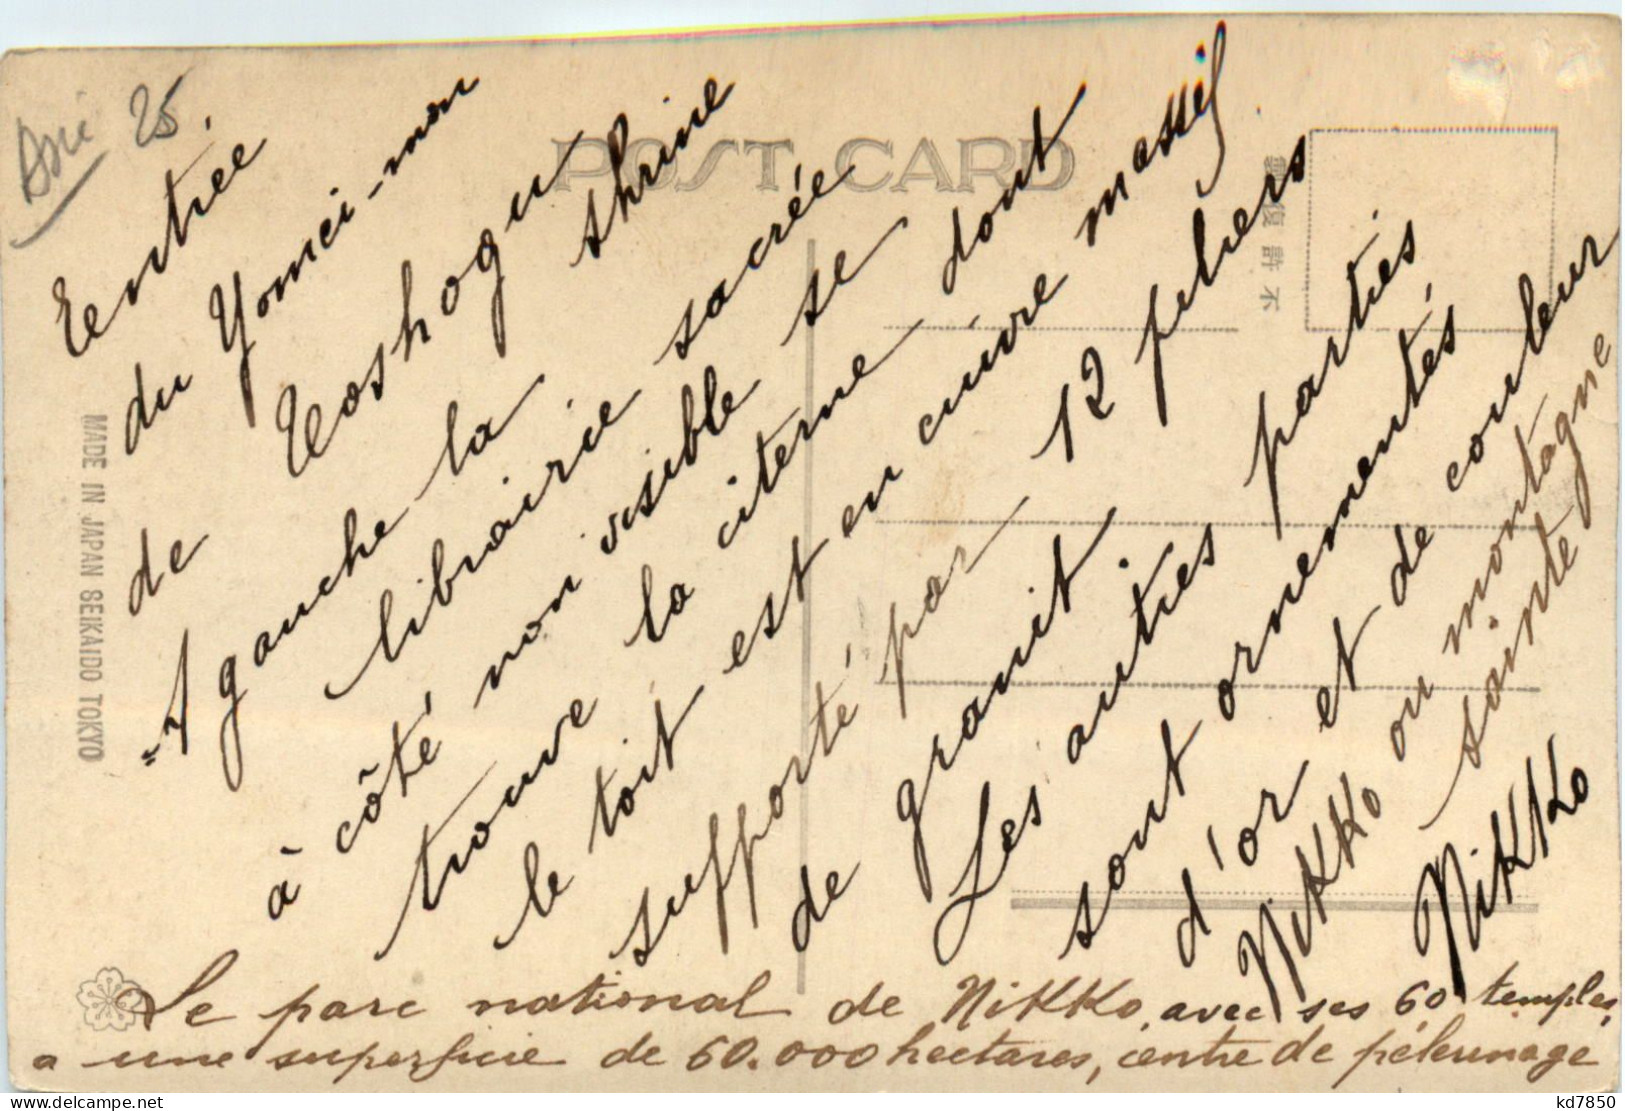 Asie 25.
POST CARD
不許複製
MADE IN JAPAN SEIKAIDO TOKYO
Entrée
du Yomei-mon
de Toshogu
shrine
A gauche la
librairie sacrée
à côté non visible se
trouve la citerne dont
le toit est en cuivre massif
supporté par 12 piliers
de granit
Les autres parties
sont ornementés
d'or et de couleur
Nikko ou montagne
sainte
Nikko
Le parc national de Nikko, avec ses 60 temples,
a une superficie de 60.000 hectares, centre de pélerinage
kd7850